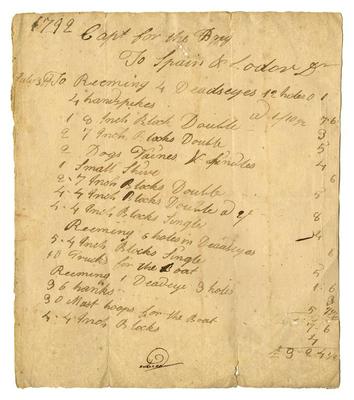 1792
Capt for the Brig
To Spain & Lodor Dr
To Reeming 4 Deadseyes 12 holes 0 1
4 handspikes 7 6
1 8 Inch Block Double 3
2 7 Inch Blocks Double 5
2 Dogs Vaines & Spindles 4
1 Small Shive 6
2 - 7 Inch Blocks Double 5
4 - 4 Inch Blocks Double 8
4 - 4 Inch Blocks Single 4
Reeming 6 holes in Deadeyes 6
5 - 4 Inch Blocks Single 5
10 Trucks for the Boat 1 6
Reeming 1 Deadeye 3 holes 3
36 hanks
30 Mast hoops for the Boat 7 6
4 - 4 Inch Blocks 4
£ 3 2